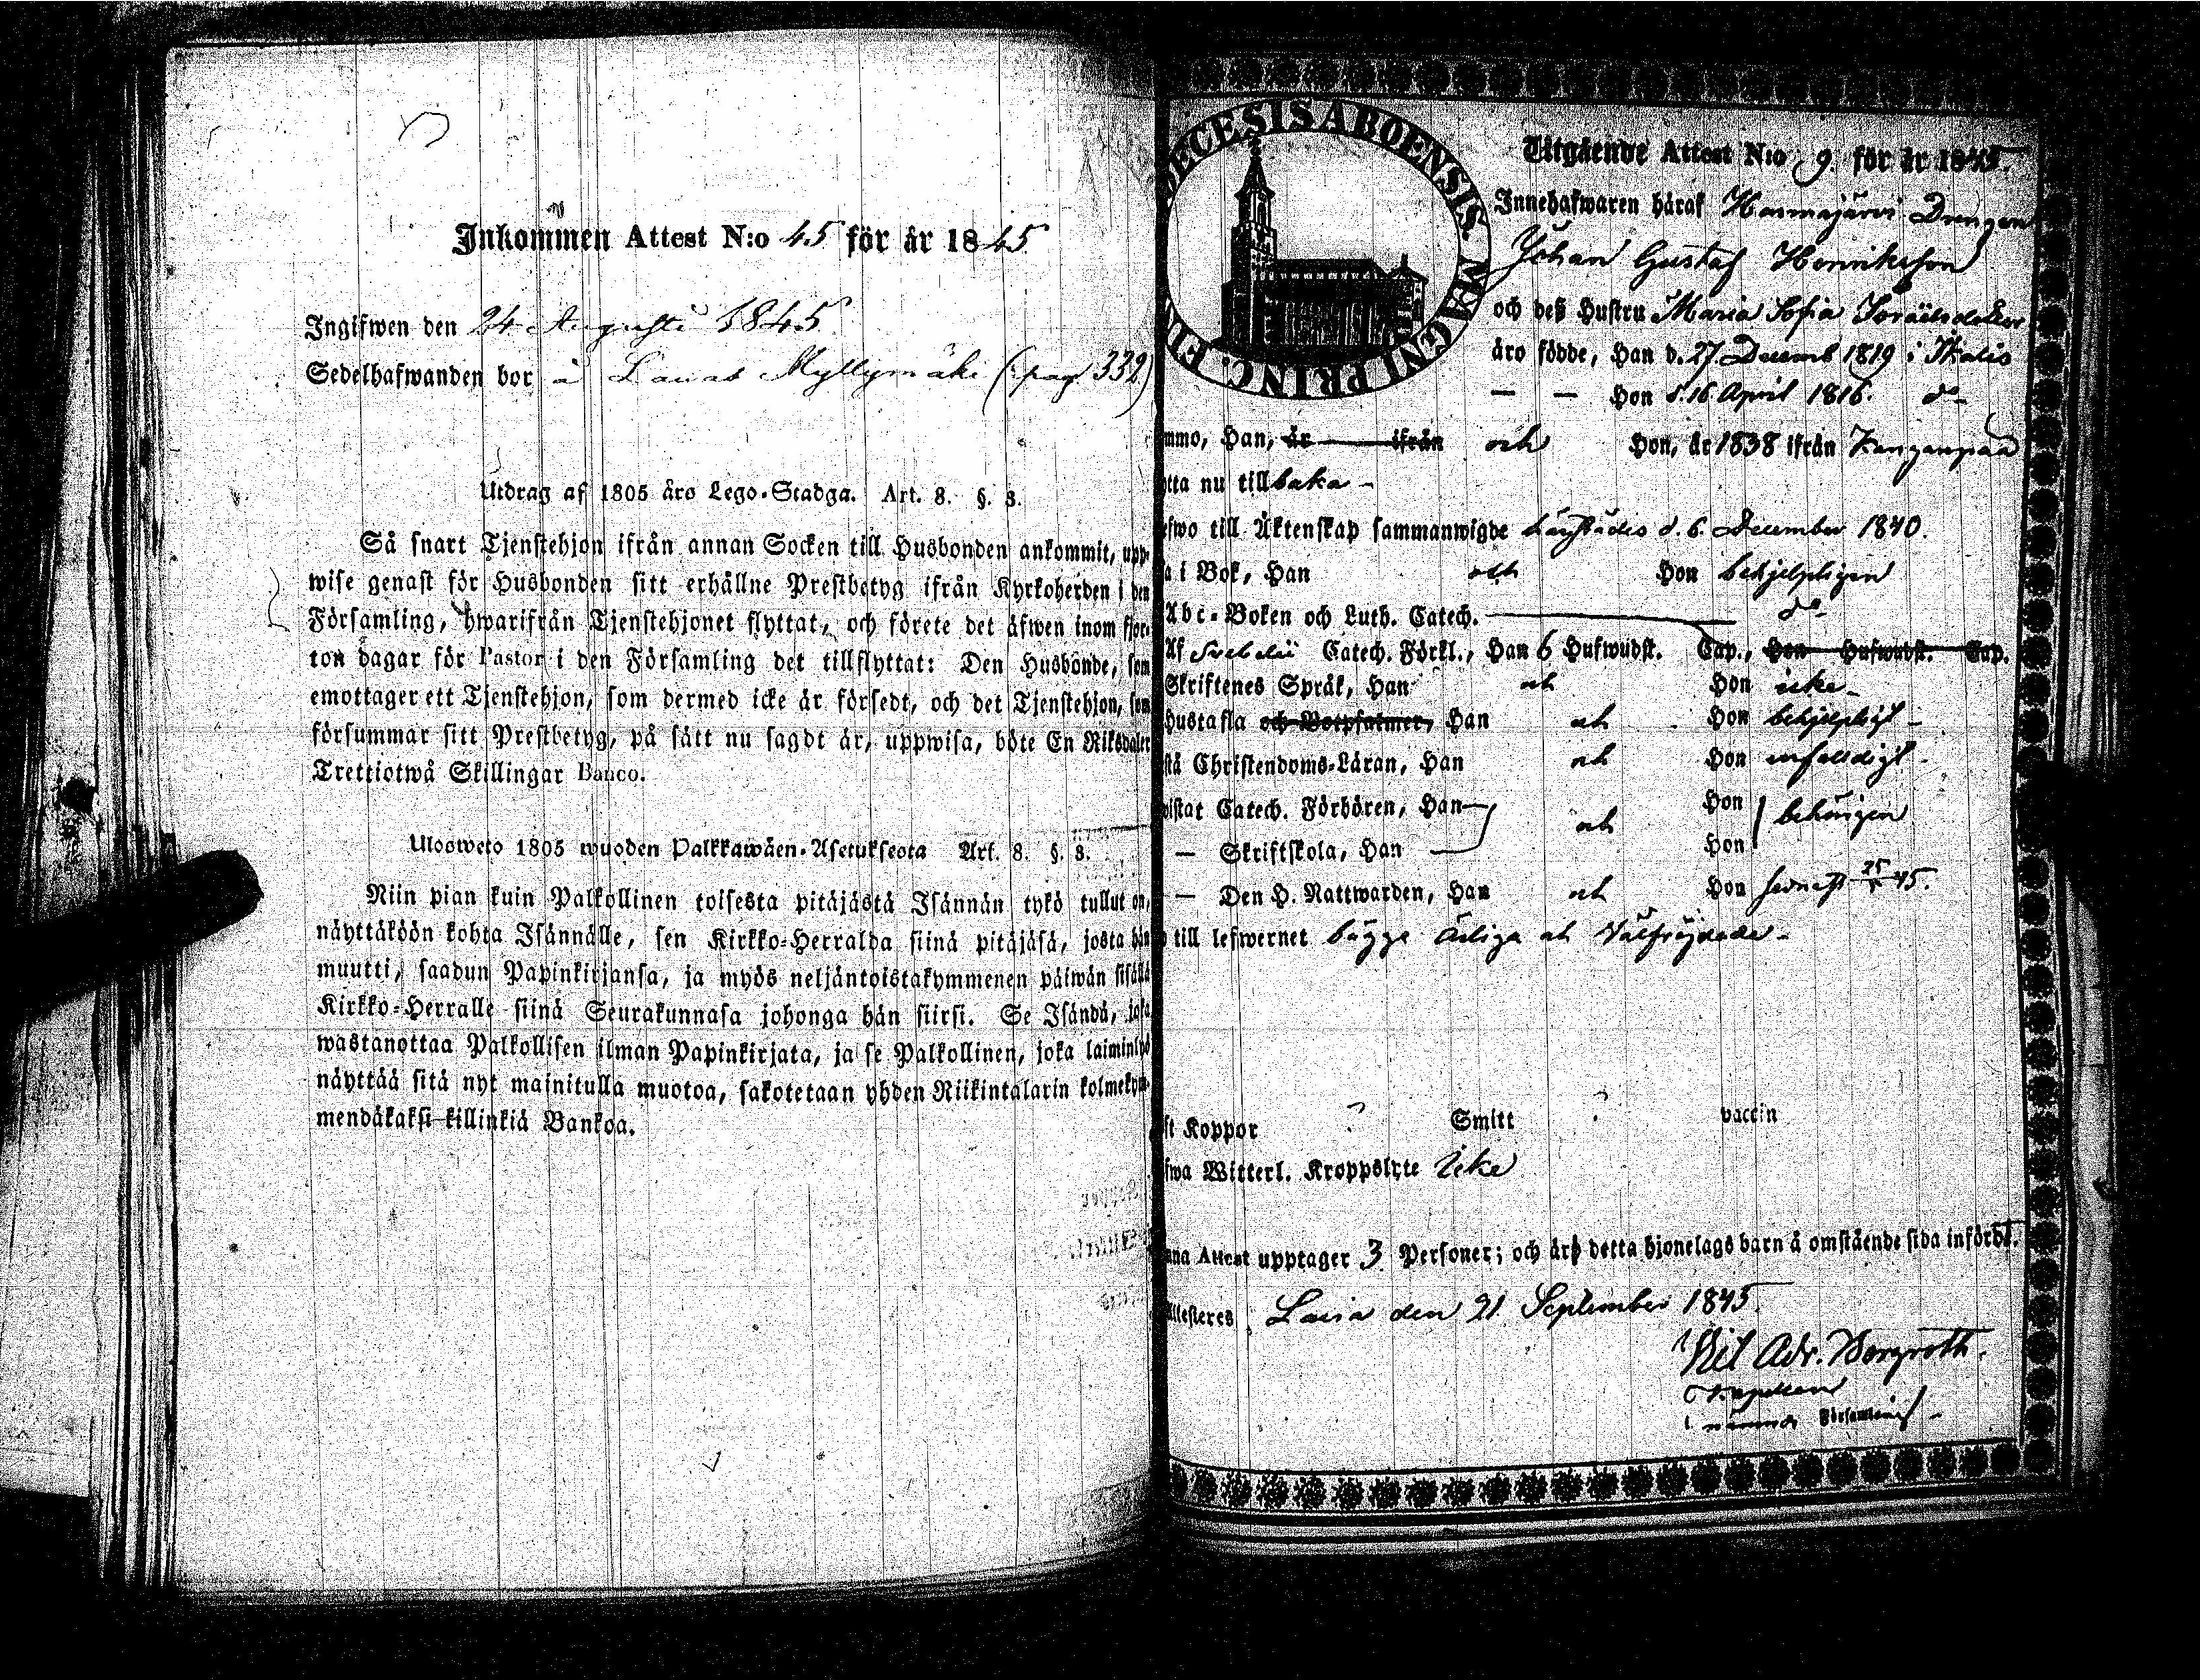 Inkommen Attest N:o 45 för år 1845
Ingifwen den 24 Augusti 1845
Sedelhafwanden bor å Myllymäki (pag. 332)
Utdrag af 1805 års Lego-Stadga. Art. 8. §. 3.
Så snart Tjenstehjon ifrån annan Socken till Husbonden ankommit, upp-
wise genast för Husbonden sitt erhållne Prestbetyg ifrån Kyrkoherden i den
Församling, hwarifrån Tjenstehjonet flyttat, och förete det äfwen inom fjor-
ton dagar för Pastor i den Församling det tillflyttat: Den Husbonde, sem
emottager ett Tjenstehjon, som dermed icke är försedt, och det Tjenstehjon, sem
försummar sitt Prestbetyg, på sätt nu sagdt är, uppwisa, böte En Riksdaler
Trettiotwå Skillingar Banco.
Ulosweto 1805 wuoden Palkkawäen-Asetuksesta Art. 8. §. 3.
Niin pian kuin Palkollinen toisesta pitäjästä Isännän tykö tullut on,
näyttäköön kohta Isännälle, sen Kirkko-Herralda siinä pitäjäsä, josta hän
muutti, saadun Papinkirjansa, ja myös neljäntoistakymmenen päiwän sisällä
Kirkko-Herralle siinä Seurakunnasa johonga hän siirsi. Se Isändä, joka
wastanottaa Palkollisen ilman Papinkirjata, ja se Palkollinen, joka laiminlyö
näyttää sitä nyt mainitulla muotoa, sakotetaan yhden Riikintalarin kolmekym-
mendäkaksi killinkiä Bankoa.
DECESIS ABOENSIS MAGNI PRINC. FIN
Utgående Attest N:o 9. för år 1845.
Innehafwaren häraf Drengen
Johan Gustaf Henriksson
och deß Hustru Maria Sofia Israelsdotter
äro födde, Han d. 27 Decemb 1819 i Ikalis
— — Hon d. 16 April 1816. do
mmo, Han, år ifrån och Hon, år 1838 ifrån Kanganpää
tta nu tillbaka -
fwo till Äktenskap sammanwigde härstädes d. 6. December 1840.
a i Bok, Han och Hon behjelpligen
Abc-Boken och Luth. Catech. do
Af Svebelii Catech. Förkl., Han 6 Hufwudst. Cap., Hon Hufwudst. Cap.
Skriftenes Språk, Han och Hon icke -
Hustafla och Botpsalmer, Han och Hon behjelpligt -
stå Christendoms-Läran, Han och Hon enfalldigt -
wistat Catech. Förhören, Han och Hon behörigen
— Skriftskola, Han Hon
— Den H. Nattwarden, Han och Hon senast 25/5 45.
till lefwernet bägge ärliga och Välfräjdade -
st Koppor ? Smitt ? vaccin
fwa Witterl. Kroppslyte icke
nna Attest upptager 3 Personer; och äro detta hjonelags barn å omstående sida införde.
Attesteres, Lavia den 21 September 1845.
Nil Adr. Borgroth.
Kapellan
i nämnda Församling -